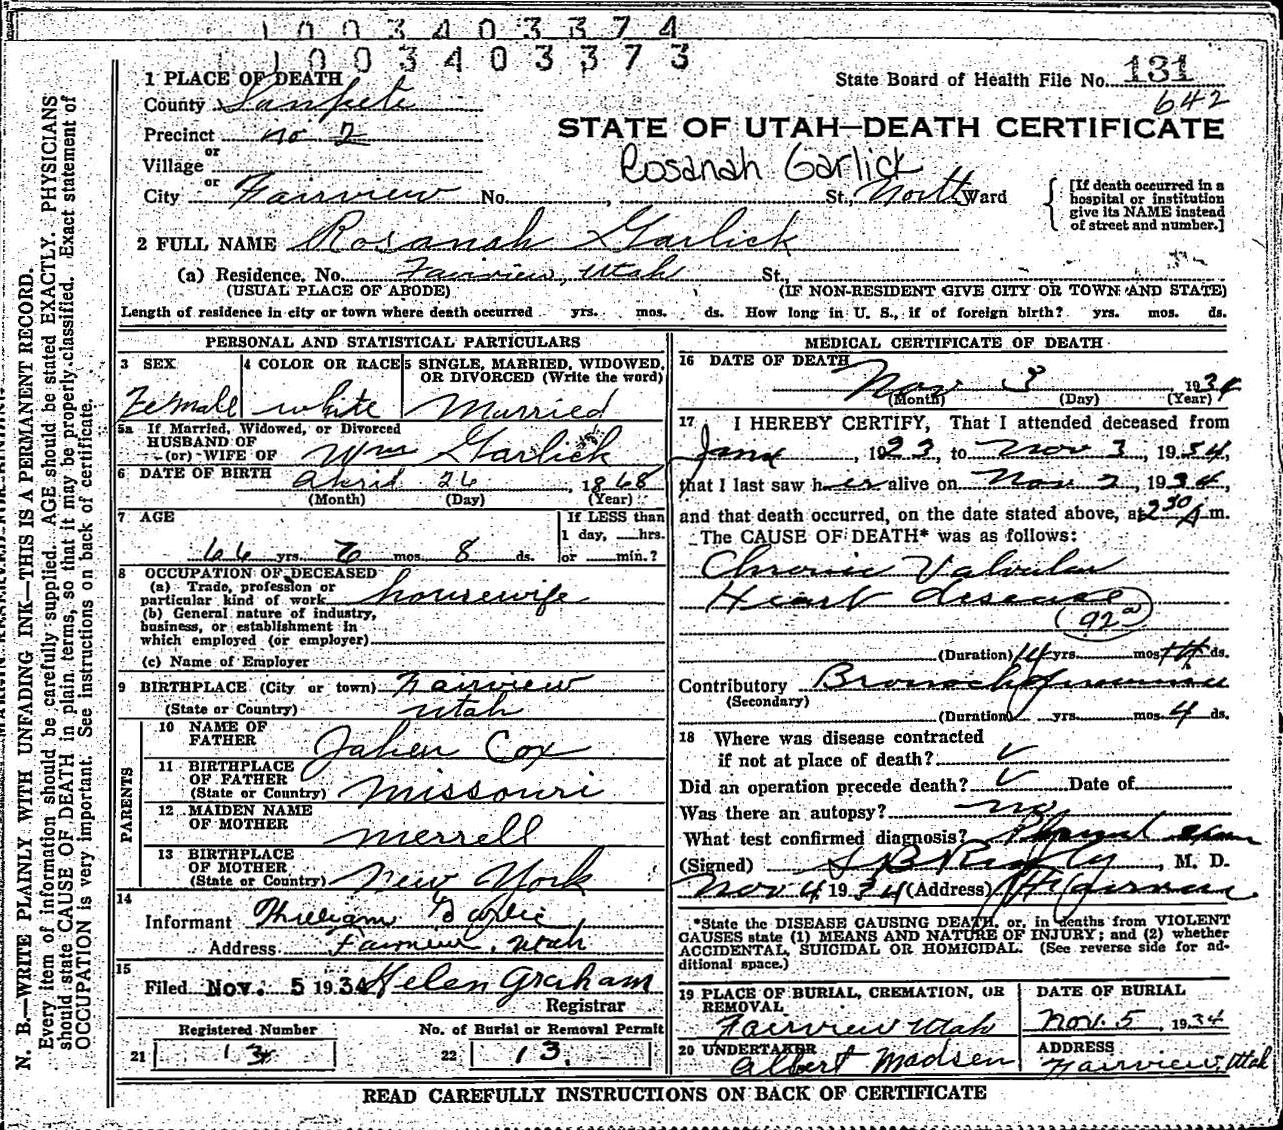 1003403374
1003403373
1 PLACE OF DEATH
State Board of Health File No. 131
County Sanpete
642
Precinct no 2
STATE OF UTAH—DEATH CERTIFICATE
or
Village
Rosanah Garlick
or
City Fairview No. , St., North Ward
[If death occurred in a
hospital or institution
give its NAME instead
of street and number.]
2 FULL NAME Rosanah Garlick
(a) Residence, No. Fairview, Utah St.,
(USUAL PLACE OF ABODE) (IF NON-RESIDENT GIVE CITY OR TOWN AND STATE)
Length of residence in city or town where death occurred yrs. mos. ds. How long in U. S., if of foreign birth? yrs. mos. ds.
PERSONAL AND STATISTICAL PARTICULARS
3 SEX
Female
4 COLOR OR RACE
white
5 SINGLE, MARRIED, WIDOWED,
OR DIVORCED (Write the word)
Married
5a If Married, Widowed, or Divorced
HUSBAND OF
(or) WIFE OF Wm Garlick
6 DATE OF BIRTH April 26, 1868
(Month) (Day) (Year)
7 AGE
66 yrs. 6 mos 8 ds.
If LESS than
1 day, hrs.
or min.?
8 OCCUPATION OF DECEASED
(a) Trade, profession or
particular kind of work housewife
(b) General nature of industry,
business, or establishment in
which employed (or employer)
(c) Name of Employer
9 BIRTHPLACE (City or town) Fairview
(State or Country) Utah
PARENTS
10 NAME OF
FATHER Jahen Cox
11 BIRTHPLACE
OF FATHER
(State or Country) Missouri
12 MAIDEN NAME
OF MOTHER Merrell
13 BIRTHPLACE
OF MOTHER
(State or Country) New York
14
Informant
Address Fairview, Utah
15
Filed Nov. 5 1934 Helen Graham
Registrar
Registered Number
21 13
No. of Burial or Removal Permit
22 13.
MEDICAL CERTIFICATE OF DEATH
16 DATE OF DEATH
Nov 3, 1934
(Month) (Day) (Year)
17 I HEREBY CERTIFY, That I attended deceased from
, 1923, to Nov 3, 1934,
that I last saw her alive on Nov 2, 1934,
and that death occurred, on the date stated above, at 2 30 A m.
The CAUSE OF DEATH* was as follows:
Chronic Valvular
Heart disease
92a
(Duration) yrs. mos ds.
Contributory Bronchopneumonia
(Secondary)
(Duration) yrs. mos. 4 ds.
18 Where was disease contracted
if not at place of death?
Did an operation precede death? Date of
Was there an autopsy? no
What test confirmed diagnosis?
(Signed) , M. D.
Nov 4 1934 (Address)
*State the DISEASE CAUSING DEATH, or, in deaths from VIOLENT
CAUSES state (1) MEANS AND NATURE OF INJURY; and (2) whether
ACCIDENTAL, SUICIDAL OR HOMICIDAL. (See reverse side for ad-
ditional space.)
19 PLACE OF BURIAL, CREMATION, OR
REMOVAL
Fairview Utah
DATE OF BURIAL
Nov. 5, 1934
20 UNDERTAKER
Albert Madsen
ADDRESS
Fairview, Utah
READ CAREFULLY INSTRUCTIONS ON BACK OF CERTIFICATE
N. B.—WRITE PLAINLY WITH UNFADING INK—THIS IS A PERMANENT RECORD.
Every item of information should be carefully supplied. AGE should be stated EXACTLY. PHYSICIANS
should state CAUSE OF DEATH in plain terms, so that it may be properly classified. Exact statement of
OCCUPATION is very important. See instructions on back of certificate.